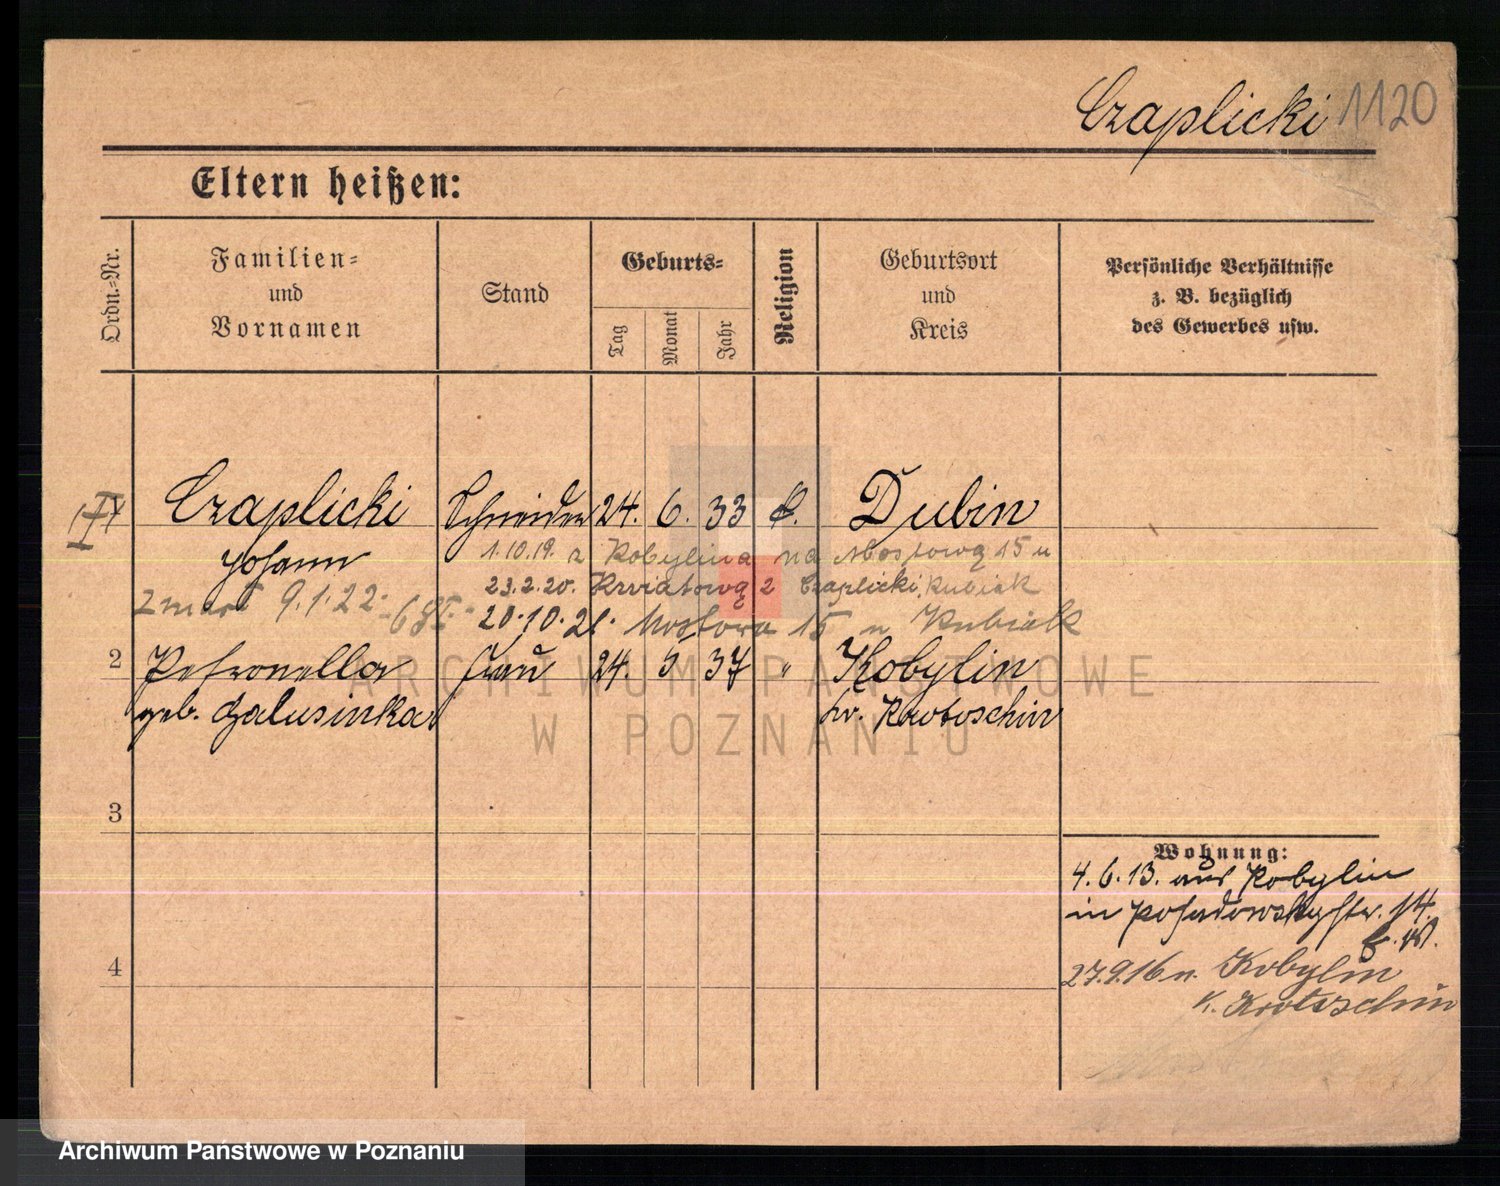 Czaplicki 1120
Eltern heißen:
Ordn.-Nr.
Familien-
und
Vornamen
Stand
Geburts-
Tag
Monat
Jahr
Religion
Geburtsort
und
Kreis
Persönliche Verhältnisse
z. B. bezüglich
des Gewerbes usw.
Czaplicki Schneider 24. 6. 33 k. Dubin
Johann
1.10.19. z Kobylina na Mostową 15 u
23.2.20. Kwiatową 2 Czaplicki, Kubiak
zmarł 9.1.22
20.10.21. Mostowa 15 u Kubiak
2 Petronella Frau 24. 5. 37 " Kobylin
geb. Galusinka Kr. Krotoschin
3
Wohnung:
4.6.13. aus Kobylin
in Posadowskystr. 14.
4
27.9.16 n. Kobylin
K. Krotoschin
ARCHIWUM PAŃSTWOWE
W POZNANIU
Archiwum Państwowe w Poznaniu